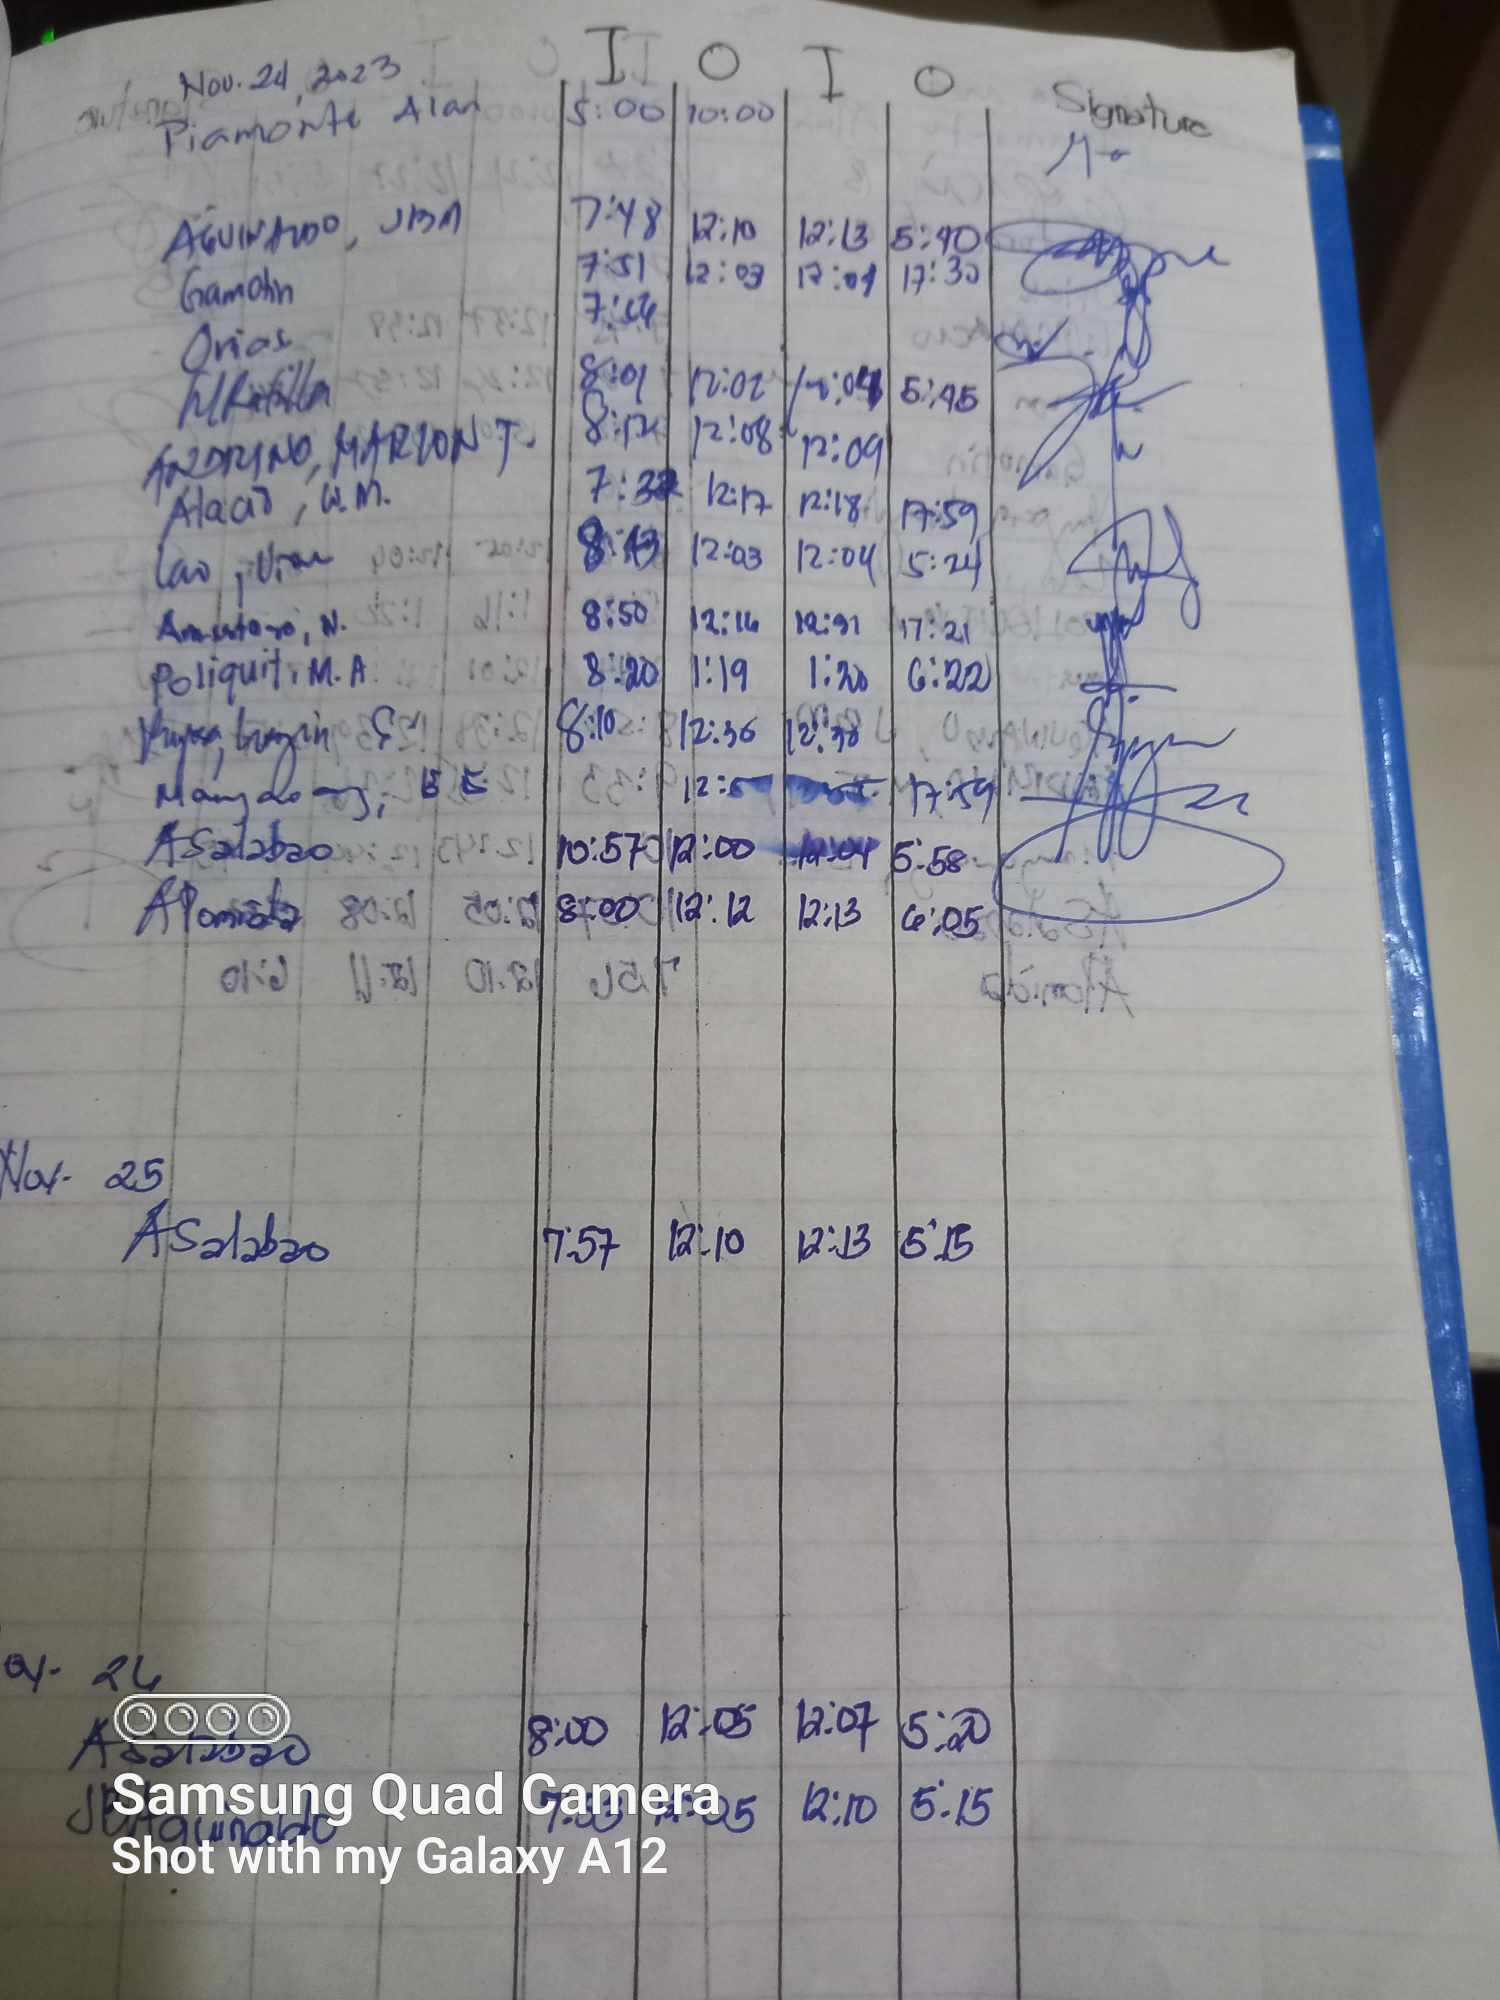 I O I O
Nov. 24, 2023 Signature
Piamonte Alan 5:00 10:00
AGUINALDO, JBM 7:48 12:10 12:13 5:40
Gamotin 7:51 12:03 12:04 17:30
Orias 7:56
8:01 12:02 5:45
ANDRINO, MARVON T. 8:12 12:08 12:09
Alacio, W.M. 12:17 12:18 17:59
Lao, 12:03 12:04 5:24
8:50 12:16 12:31 17:21
Poliquit, M.A 8:20 1:19 1:20 6:22
8:10 12:36 12:38
17:59
ASalabao 10:57 12:00 12:04 5:58
8:00 12:12 12:13 6:05
Nov- 25
ASalabao 7:57 12:10 12:13 5:15
26
ASalabao 8:00 12:05 12:07 5:20
Samsung Quad Camera
JBAguinaldo 12:10 5:15
Shot with my Galaxy A12